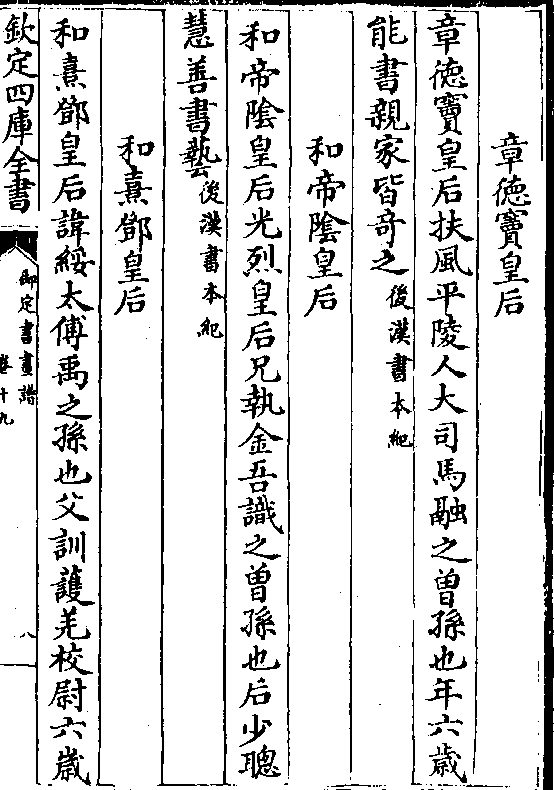 章德竇皇后
章德竇皇后扶風平陵人大司馬融之曾孫也年六歲
能書親家皆竒之後漢書本紀
和帝隂皇后
和帝隂皇后光烈皇后兄執金吾識之曾孫也后少聰
慧善書藝後漢書本紀
和熹鄧皇后
和熹鄧皇后諱綏太傅禹之孫也父訓護羌校尉六歳
欽定四庫全書
御定書畫譜
卷十九
八